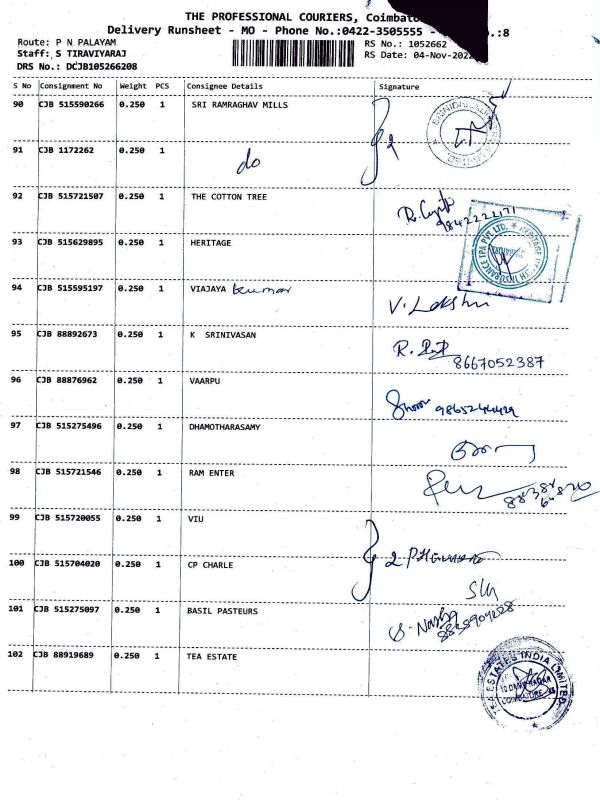 THE PROFESSIONAL COURIERS, Coimbato
Delivery Runsheet - MO - Phone No.:0422-3505555 - .:8
Route: P N PALAYAM
RS No.: 1052662
Staff: S TIRAVIYARAJ
RS Date: 04-Nov-2022
DRS No.: DCJB105266208
S No Consignment No Weight PCS Consignee Details Signature
90 CJB 515590266 0.250 1 SRI RAMRAGHAV MILLS
2
91 CJB 1172262 0.250 1 do
92 CJB 515721507 0.250 1 THE COTTON TREE
9842222171
93 CJB 515629895 0.250 1 HERITAGE
HERITAGE HEALTH INSURANCE TPA PVT LTD.
94 CJB 515595197 0.250 1 VIAJAYA kumar
V. Lakshmi
95 CJB 88892673 0.250 1 K SRINIVASAN
8667052387
96 CJB 88876962 0.250 1 VAARPU
97 CJB 515275496 0.250 1 DHAMOTHARASAMY
98 CJB 515721546 0.250 1 RAM ENTER
99 CJB 515720055 0.250 1 VIU
100 CJB 515704020 0.250 1 CP CHARLE
2
101 CJB 515275097 0.250 1 BASIL PASTEURS
102 CJB 88919689 0.250 1 TEA ESTATE
TEA ESTATES INDIA LIMITED.
COIMBATORE